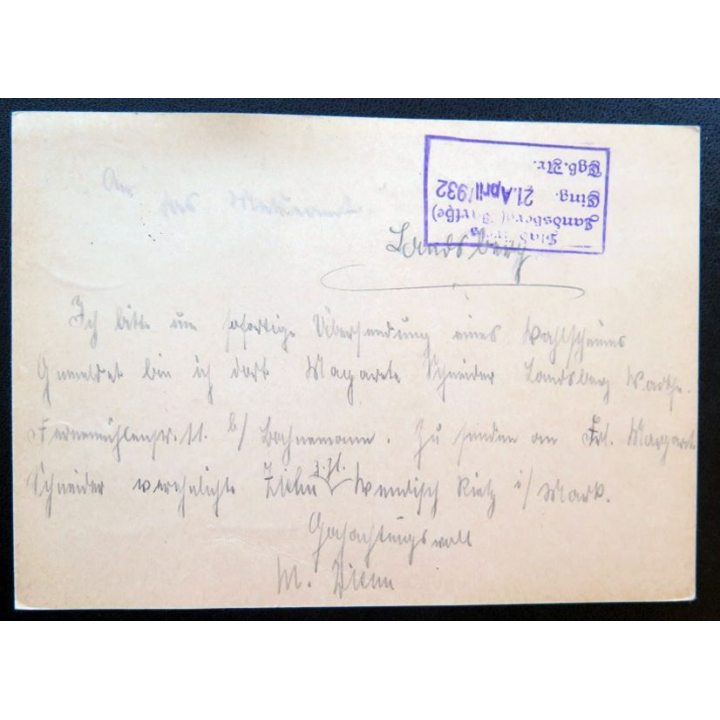 An
das
Landsberg
Ich bitte um sofortige Übersendung eines Wahlscheines
Gemeldet bin ich dort Magarete Schneider Landsberg Warthe.
str. 11. b/ Bachnemann. Zu senden an Frl. Margarete
Schneider verehelichte z.Zt. Wendisch Rietz i/Mark.
Hochachtungsvoll
M.
Landsberg (Warthe)
Eing. 21. April 1932
Tgb.Nr.